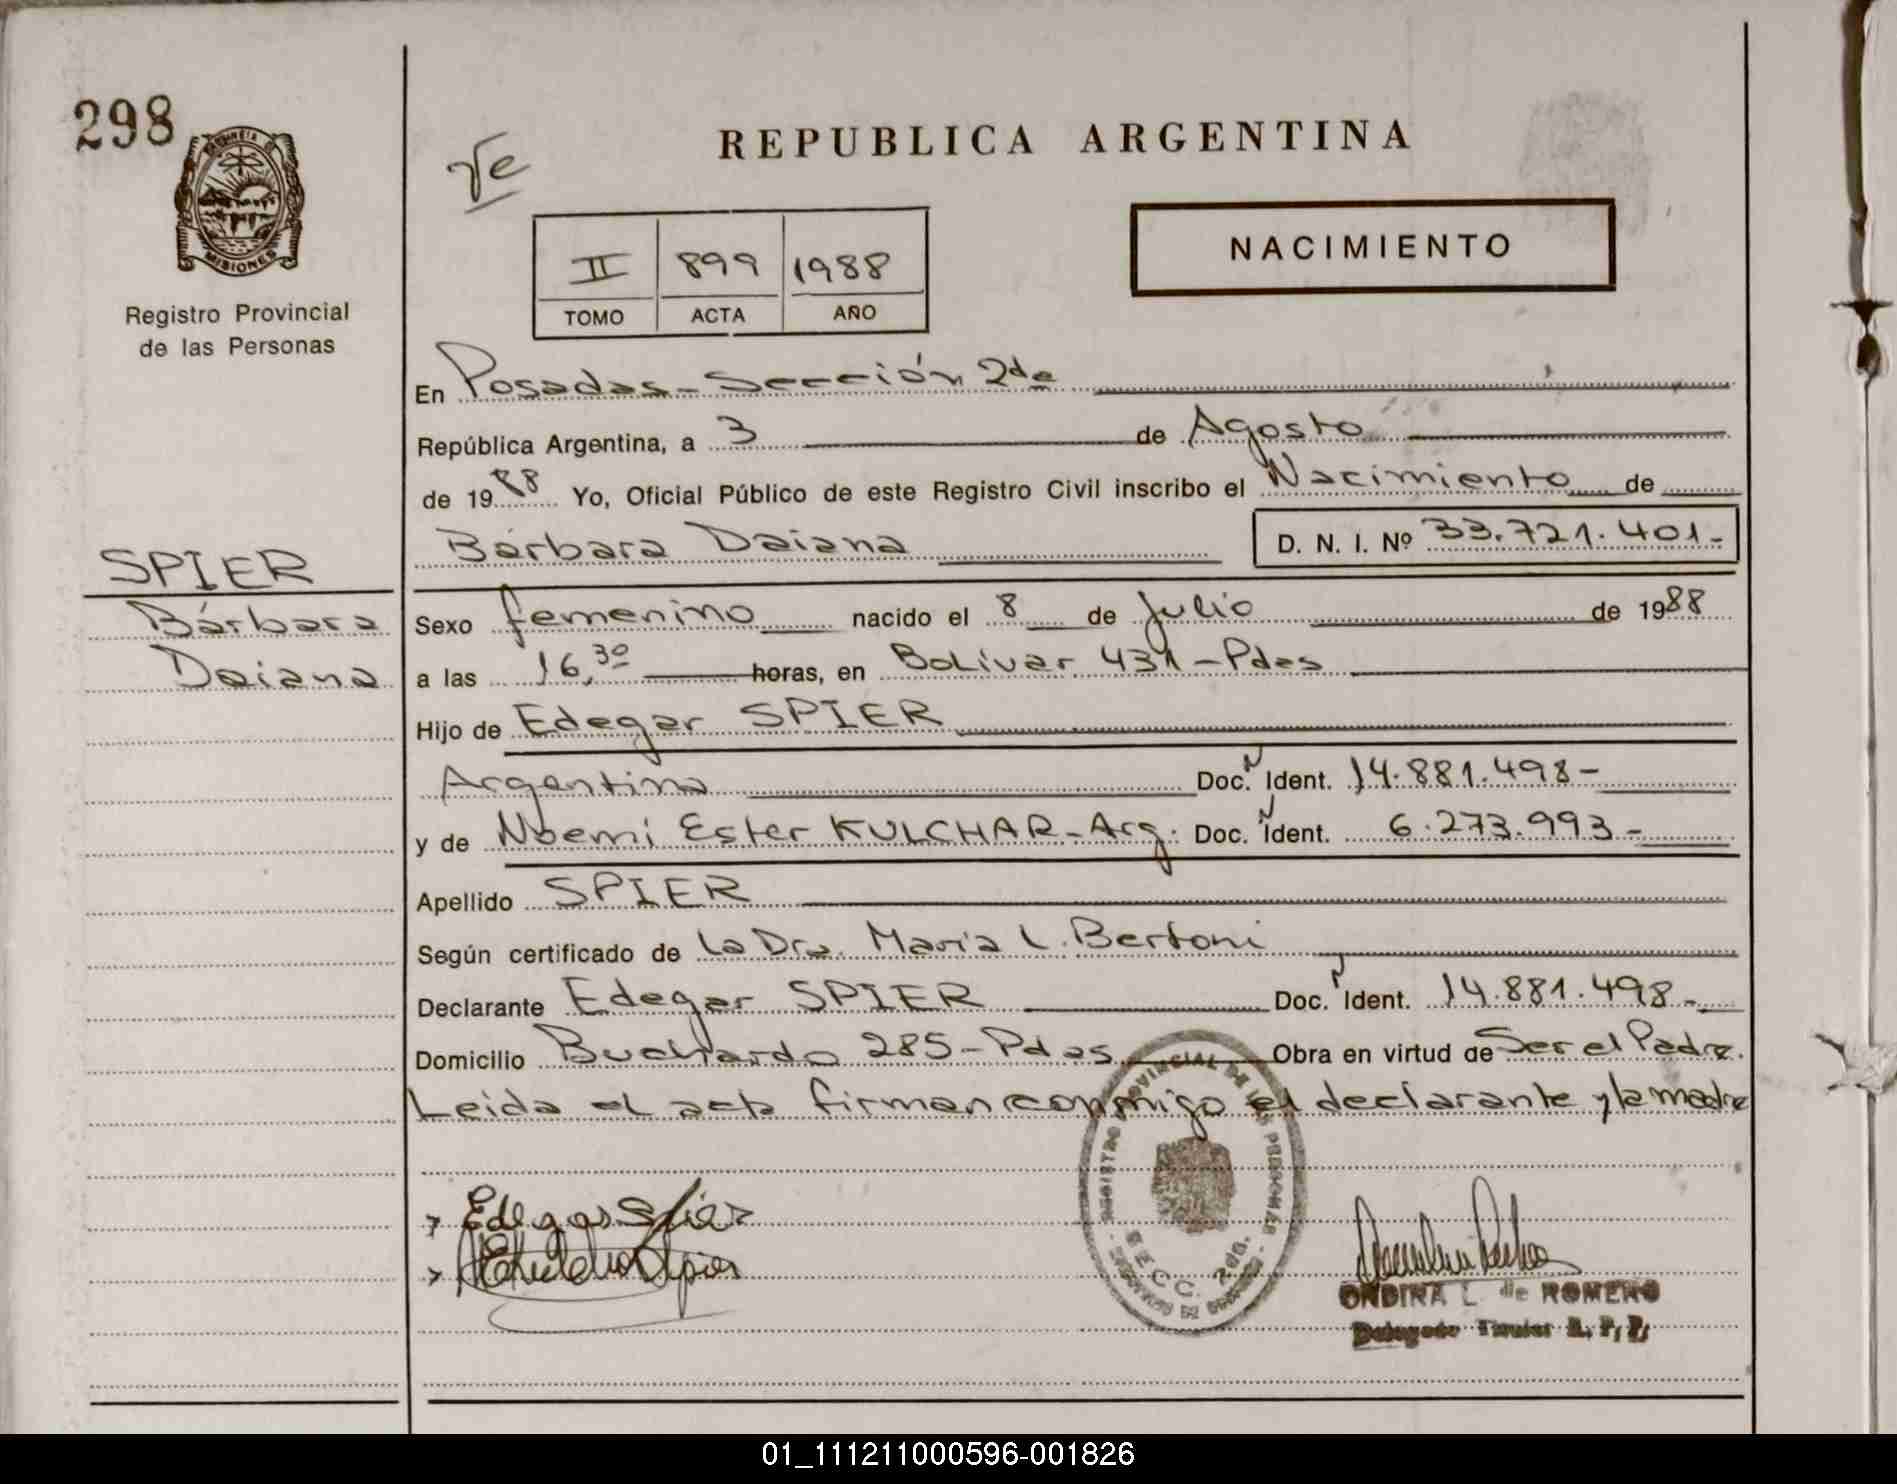 298
PROVINCIA DE
MISIONES
Registro Provincial
de las Personas
REPUBLICA ARGENTINA
NACIMIENTO
II 899 1988
TOMO ACTA AÑO
En Posadas-Sección 2da
República Argentina, a 3 de Agosto
de 1988 Yo, Oficial Público de este Registro Civil inscribo el Nacimiento de
Bárbara Daiana D. N. I. Nº 33.721.401-
SPIER
Bárbara
Daiana
Sexo femenino nacido el 8 de Julio de 1988
a las 16,30 horas, en Bolívar 431-Pdas
Hijo de Edegar SPIER
Argentino Doc. Ident. 14.881.498-
y de Noemi Ester KULCHAR-Arg. Doc. Ident. 6.273.993-
Apellido SPIER
Según certificado de La Dra. María L. Bertoni
Declarante Edegar SPIER Doc. Ident. 14.881.498-
Domicilio Buchardo 285-Pdas Obra en virtud de Ser el Padre.
Leida el acta firman conmigo el declarante y la madre
REGISTRO PROVINCIAL DE LAS PERSONAS
SECC. 2da.
Edegar Spier
ONDINA L. de ROMERO
Delegado Titular R. P. P.
01_111211000596-001826